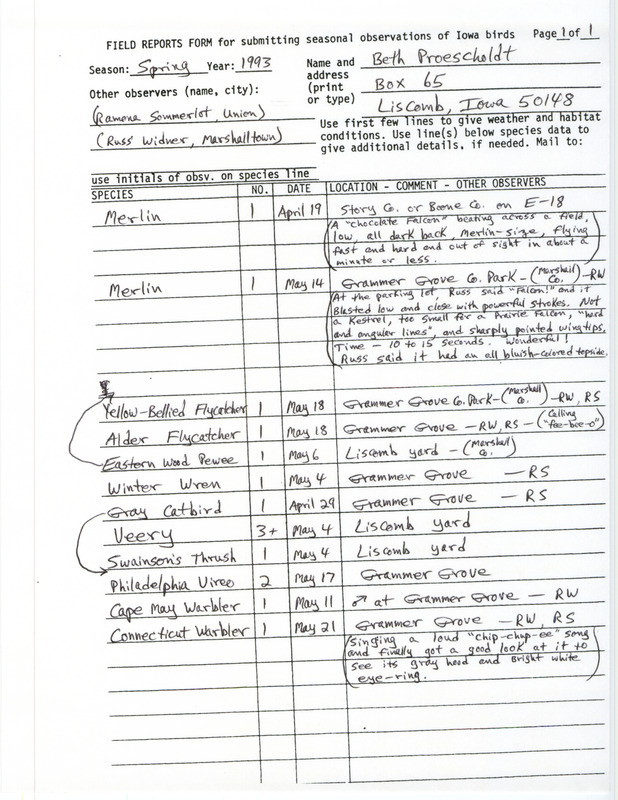 FIELD REPORTS FORM for submitting seasonal observations of Iowa birds Page 1 of 1
Season: Spring Year: 1993
Name and address (print or type) Beth Proescholdt
Box 65
Liscomb, Iowa 50148
Other observers (name, city):
(Ramona Sommerlot, Union)
(Russ Widner, Marshalltown)
Use first few lines to give weather and habitat
conditions. Use line(s) below species data to
give additional details, if needed. Mail to:
use initials of obsv. on species line
SPECIES NO. DATE LOCATION - COMMENT - OTHER OBSERVERS
Merlin 1 April 19 Story Co. or Boone Co. on E-18
(A "chocolate Falcon" beating across a field,
low, all dark back, Merlin-size, flying
fast and hard and out of sight in about a
minute or less.)
Merlin 1 May 14 Grammer Grove Co. Park - (Marshall Co.) - RW
(At the parking lot, Russ said "Falcon!" and it
Blasted low and close with powerful strokes. Not
a Kestrel, too small for a Prairie Falcon, "hard
and angular lines", and sharply pointed wingtips.
Time - 10 to 15 seconds. Wonderful!
Russ said it had an all bluish-colored topside.)
Yellow-Bellied Flycatcher 1 May 18 Grammer Grove Co. Park - (Marshall Co.) - RW, RS
Alder Flycatcher 1 May 18 Grammer Grove - RW, RS - (Calling "fee-bee-o")
Eastern Wood Pewee 1 May 6 Liscomb yard - (Marshall Co.)
Winter Wren 1 May 4 Grammer Grove - RS
Gray Catbird 1 April 29 Grammer Grove - RS
Veery 3+ May 4 Liscomb yard
Swainson's Thrush 1 May 4 Liscomb yard
Philadelphia Vireo 2 May 17 Grammer Grove
Cape May Warbler 1 May 11 ♂ at Grammer Grove - RW
Connecticut Warbler 1 May 21 Grammer Grove - RW, RS
(Singing a loud "chip-chup-ee" song
and finally got a good look at it to
see its gray hood and Bright white
eye-ring.)